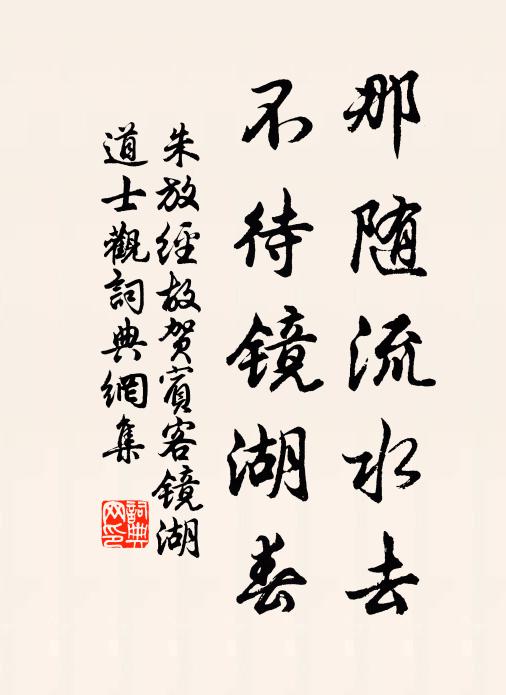 那随流水去
不待镜湖春
朱放經故贺賓客镜湖
道士觀詞典網集
詞典网印